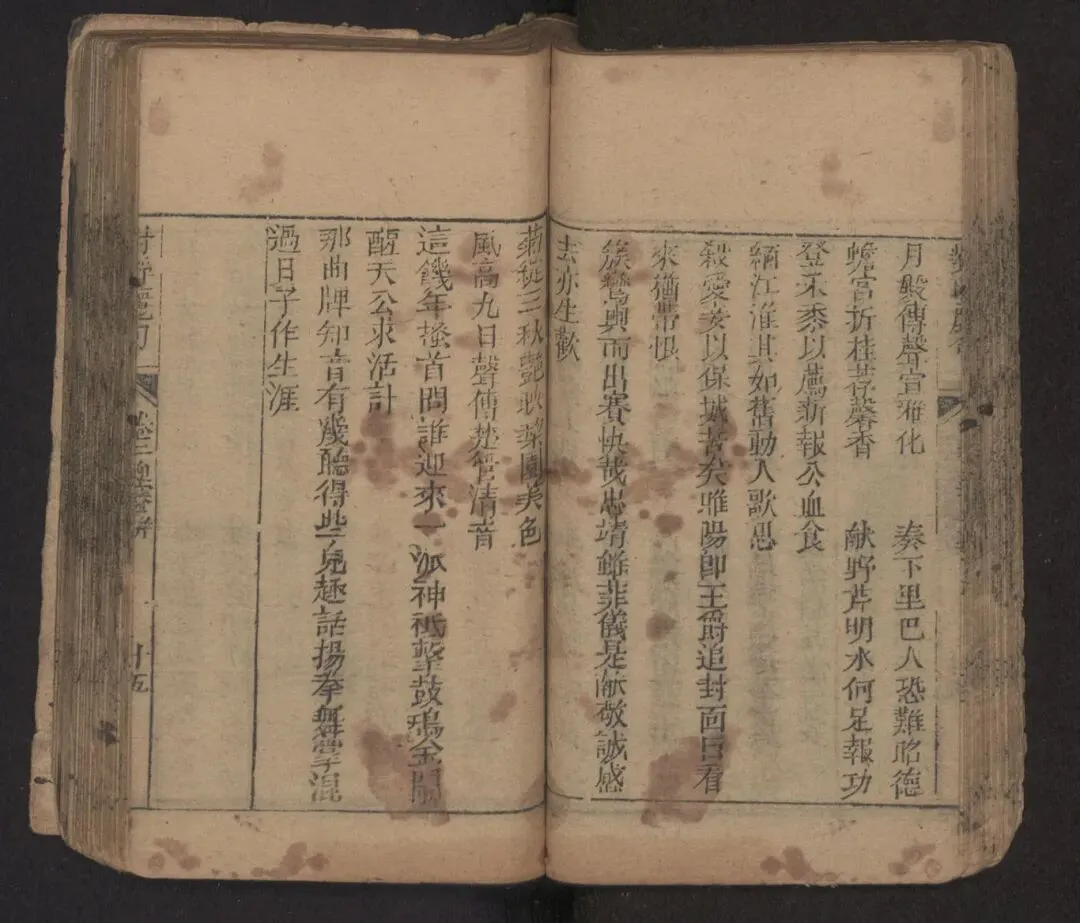 月殿傳聲宣雅化 奏下里巴人恐難昭德
蟾宮折桂荐馨香 献野芹明水何足報功
登禾黍以薦新報公血食
緬江淮其如舊動人歌思
殺愛妾以保城苦矣睢陽卽王爵追封面目看
來猶帶恨
簇鸞輿而出賽快哉忠靖雖菲儀是献敬誠感
去亦生歡
菊綻三秋艷映梨園美色
風高九日聲傳楚管清音
這饑年搔首問誰迎來一派神祇擊鼓鳴金鬧
醒天公求活計
那曲牌知音有幾聽得些兒趣話揚拳舞掌混
過日子作生涯
廿五